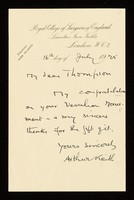 Royal College of Surgeons of England,
Lincoln's Inn Fields,
London. W.C.2.
16th day of July 1925
My dear Thompson
My congratulations
on your Vesalian Monu-
ment – & very sincere
thanks for the gift of it.
Yours Sincerely
Arthur Keith